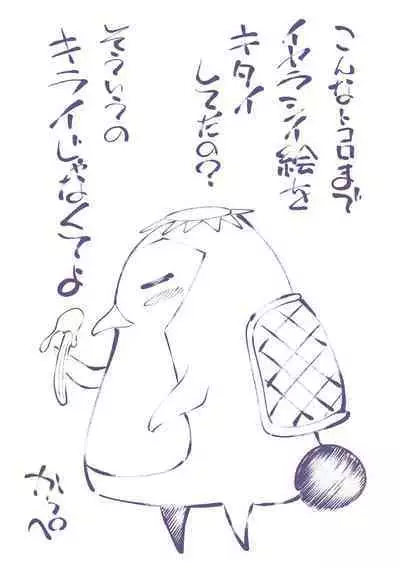 こんなトコロまで
イヤラシイ絵を
キタイ
してたの?
そういうの
キライじゃなくてよ
かっペ